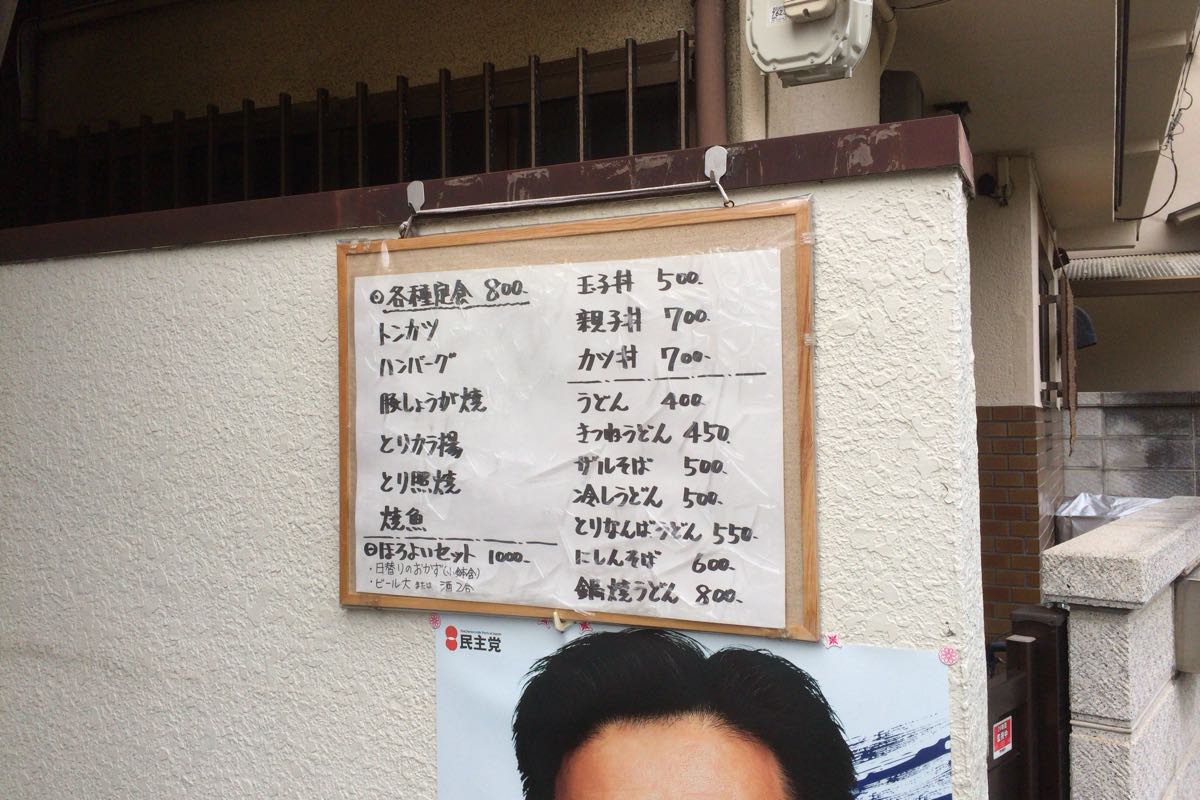 各種定食 800-
トンカツ
ハンバーグ
豚しょうが焼
とりカラ揚
とり照焼
焼魚
ほろよいセット 1000-
・日替りのおかず(小鉢含)
・ビール大 または 酒2合
玉子丼 500-
親子丼 700-
カツ丼 700-
うどん 400-
きつねうどん 450-
ザルそば 500-
冷しうどん 500-
とりなんばうどん 550-
にしんそば 600-
鍋焼うどん 800-
民主党